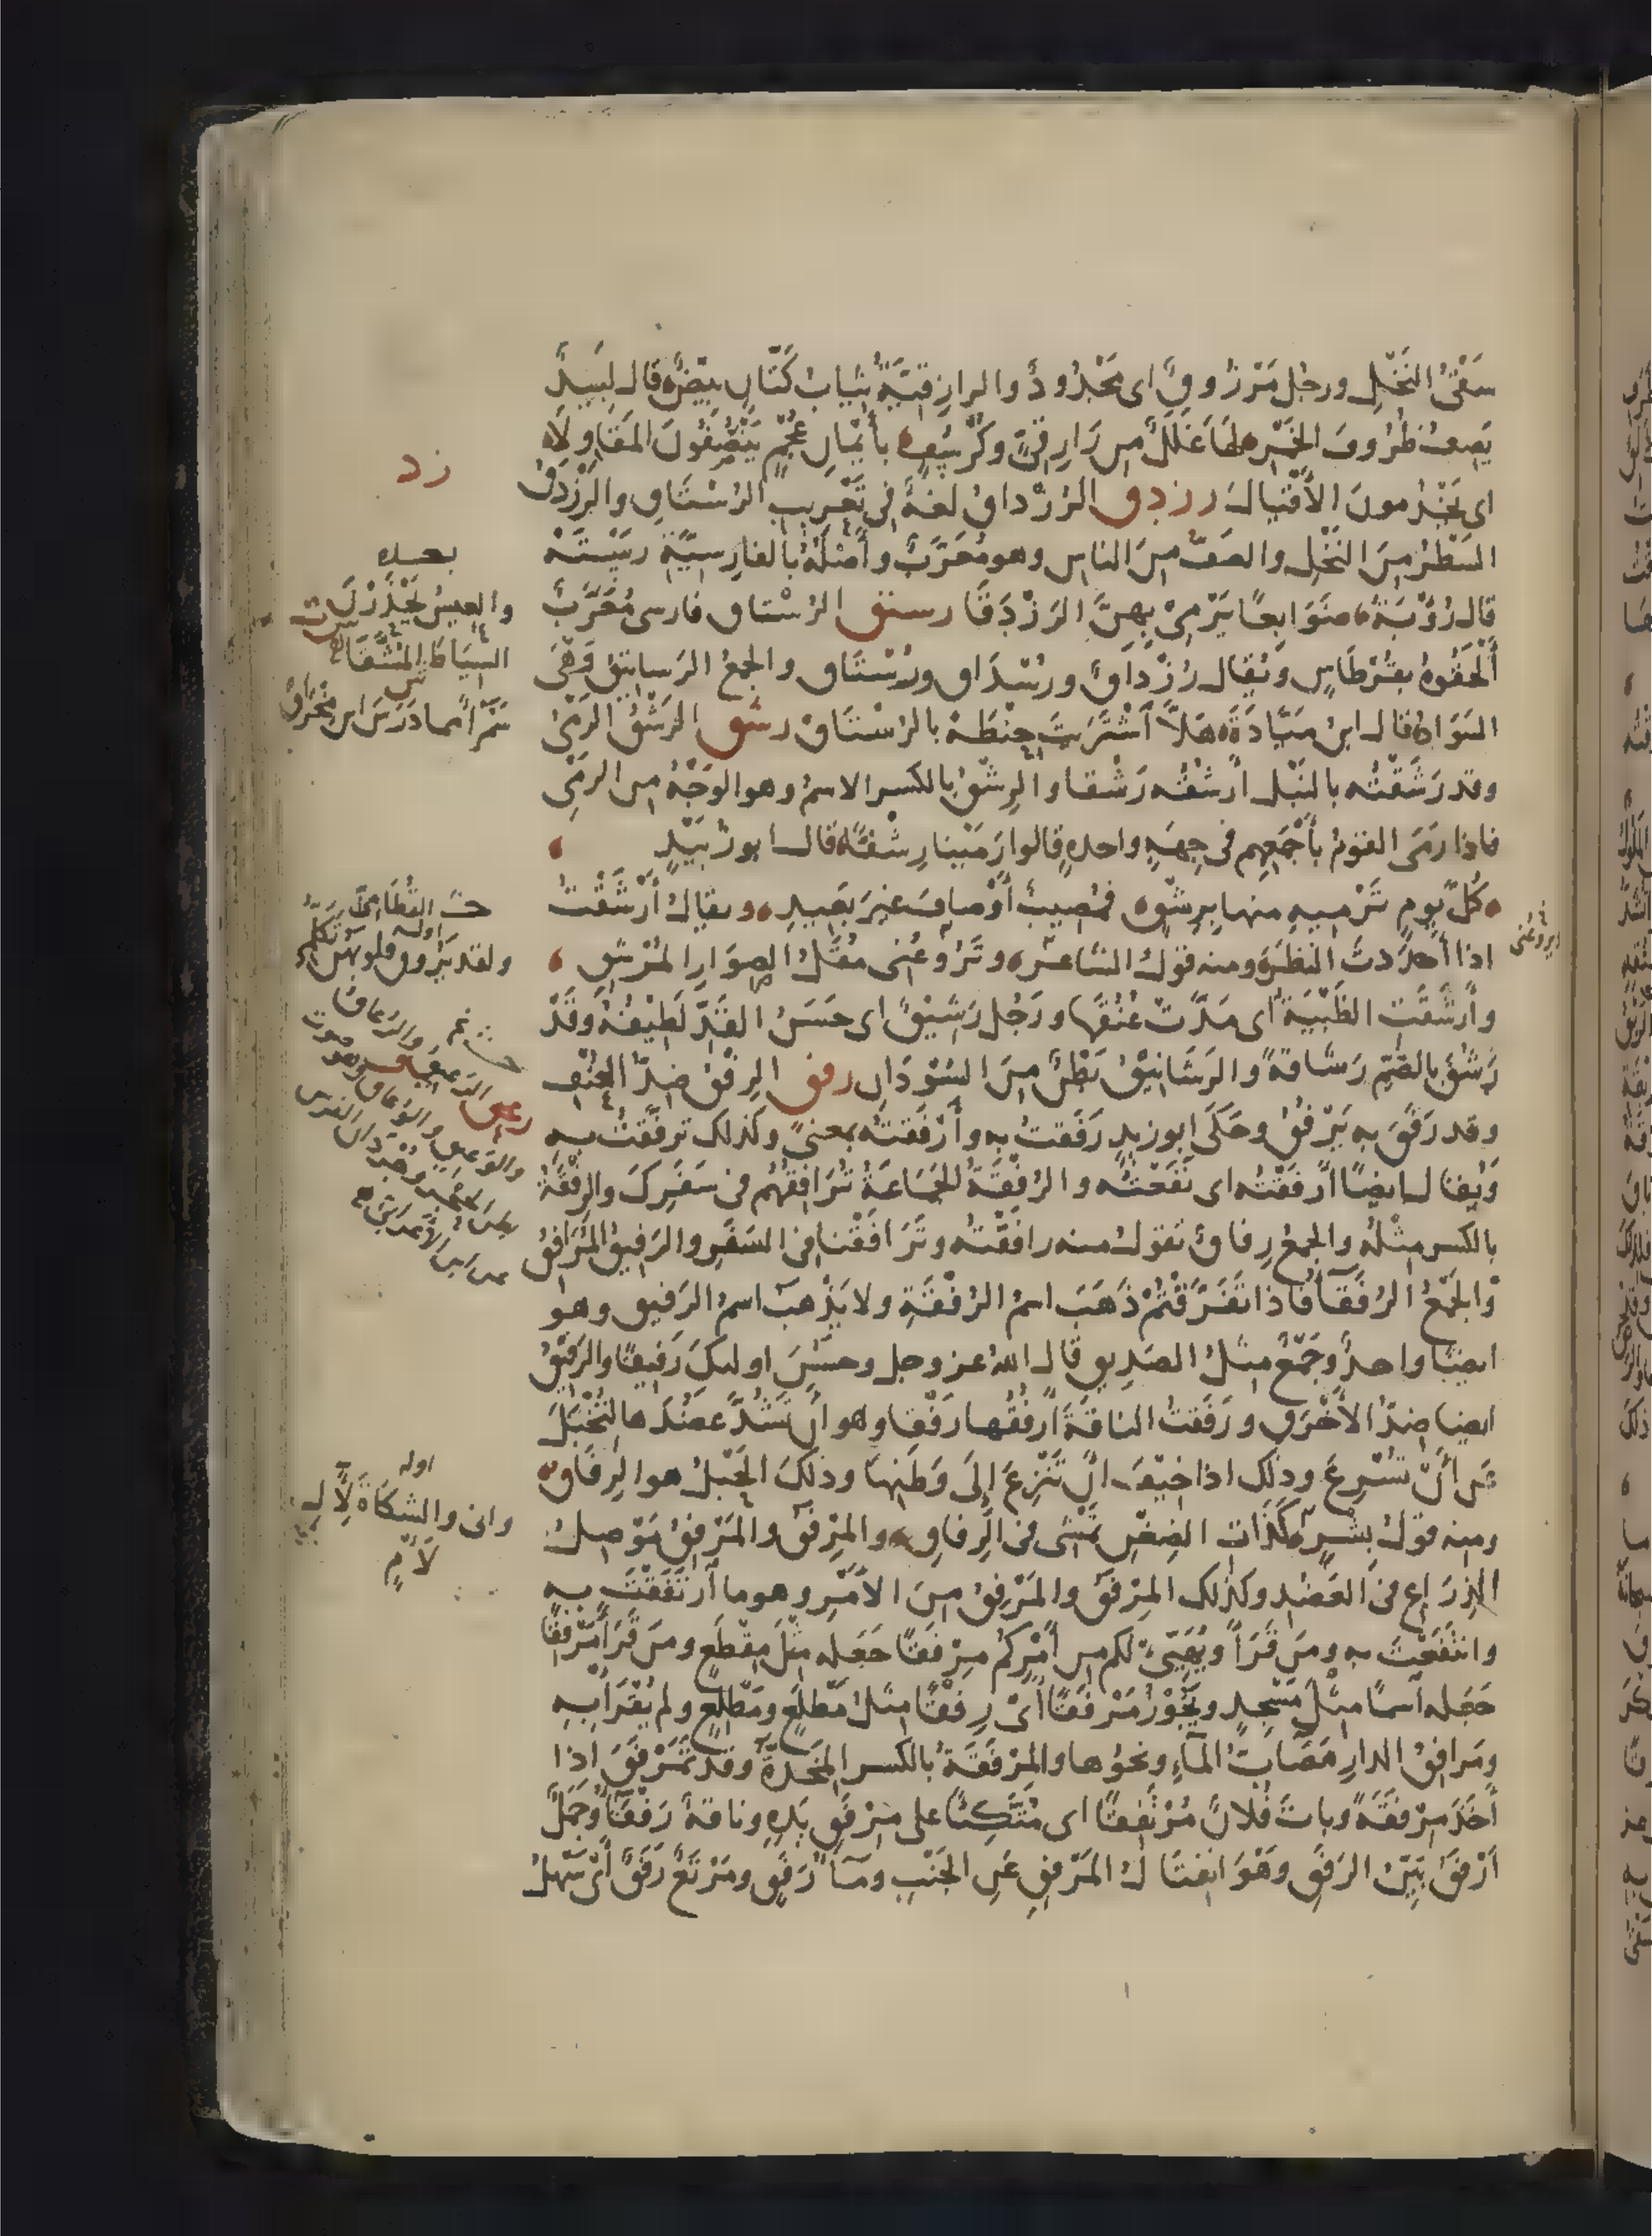 سَقْىُ النَخْلِ ورجُل مَرْزُوقٌ اى مَجْدُودٌ والرازِقِيَّةُ ثيابُ كَتّانٍ بيضٌ قال لَبِيدٌ
يَصِفُ ظُرُوفَ الخَمْرِ لها غَلَلٌ من رَازِقِيٍّ وكُرْسُفٍ بأَيْمانِ عُجْمٍ يَنْصُفُونَ المَقَاوِلَا
اى يَخْدُمونَ الأَقْيالَ رزدق الرُزْداقُ لغةٌ فى تَعْرِيبِ الرُسْتَاقِ والرَزْدَقُ
السَطْرُ مِنَ النَخْلِ والصَفُّ مِنَ الناسِ وهو مُعَرَّبٌ وأَصْلُهُ بالفارِسِيَّةِ رَسْتَهْ
قال رُؤْبَةُ ضَوَابِعًا نَرْمِى بِهِنَّ الرَزْدَقَا رستق الرُسْتاق فارسى مُعَرَّبٌ
أَلْحَقُوهُ بقُرْطَاسٍ ويُقال رُزْدَاقٌ ورُسْدَاق ورُسْتَاق والجمع الرَسَاتِيقُ وَهْىَ
السَوَادُ قال ابنُ مَيّادَةَ هَلَّا ٱشْتَرَيْتَ حِنْطَةً بالرُسْتَاقْ رشق الرَشْقُ الرَمْىُ
وقد رَشَقْتُه بالنَبْلِ أَرْشُقُه رَشْقا والرِشْقُ بالكسر الاسمُ وهو الوَجْهُ من الرمْىِ
فاذا رَمَى القومُ بأَجْمَعِهِم فى جِهَةٍ واحدةٍ قالوا رَمَيْنا رِشْقًا قال ابو زُبَيْدٍ
كُلَّ يومٍ تَرْمِيهِ منها بِرِشْقٍ فمُصِيبٌ أَوْ صافَ غَيْرَ بَعِيدِ ويقال أَرْشَقْتُ
اذا أَحْدَدتَ النظَرَ ومنه قولُ الشاعر وتَرُوعُنى مُقَلُ الصِوَارِ المُرْشِقِ
وأَرْشَقَتِ الظَبْيَةُ اى مَدَّتْ عُنُقَها ورَجُل رَشِيقٌ اى حَسَنُ القَدِّ لَطِيفُهُ وقَدْ
رَشُقَ بالضّمِّ رَشاقةً والرَشَانِيقُ بَطْنٌ مِنَ السُوْدَانِ رفق الرِفْقُ ضِدُّ العُنْفِ
وقد رَفَقَ به يَرْفُقُ وحَكَى ابو زيدٍ رَفَقتُ به وأَرْفَقتُه بمعنىً وكذلك تَرَفَّقتُ بهِ
ويُقال ايضًا أَرْفَقْتُه اى نَفَعْتُه والرُفْقَةُ الجَمَاعَةُ تُرَافِقُهُم فى سَفَرِكَ والرِفْقَةُ
بالكسر مِثْلُهُ والجمعُ رِفاقٌ تقولُ منه رافَقْتُه وتَرَافَقْنا فى السَفَرِ والرَفِيقُ المُرَافِقُ
وٱلجَمْعُ الرُفَقَآءُ فاذا تَفَرَّقْتُمْ ذَهَبَ اسمُ الرُفْقَةِ ولا يَذْهبُ اسمُ الرَفيقِ وهو
ايضًا واحدٌ وجَمْعٌ مثلُ الصَدِيقِ قال اللهُ عز وجل وحسُنَ اولئكَ رَفِيقًا والرَفِيقُ
ايضا ضِدُّ الأَخْرَقِ ورَفَقتُ الناقةَ أَرْفُقُها رَفْقا وهو أَنْ تَشُدَّ عضُدَها لتُخْبَلَ
عَن أَنْ تُسْرِعَ وذلك اذا خِيفَ أن تَنْزِعَ إِلَى وَطَنِها وذلكَ الحَبْلُ هو الرِفَاقُ
ومنه قولُ بِشْرٍ كَذَاتِ الضِغْنِ تَمْشِى فى الرِفاقِ والمِرْفَقُ والمَرْفِقُ مَوْصِلُ
الذِرَاعِ فى العَضُدِ وكذلك المِرْفَقُ والمَرْفِقُ مِنَ الأَمْرِ وهو ما ٱرْتَفَقْتَ بهِ
وانتَفَعْتَ به ومَن قَرَأَ ويُهَيِّئْ لكم من أَمْرِكُمْ مِرْفَقًا جَعَله مِثْلَ مِقْطَعٍ ومن قَرَأَ مَرْفِقًا
جَعَله ٱسمًا مِثْلَ مَسْجِدٍ ويَجُوْزُ مَرْفَقًا أَىْ رِفْقًا مِثلُ مَطْلَعٍ ومَطْلِعٍ ولم يُقْرَأْ بِهِ
ومَرافِقُ الدارِ مَصَابُّ المآءِ ونحوُها والمِرْفَقَةُ بالكسر المِخَدَّةُ وقد تَمَرْفَقَ اذا
أَخَذَ مِرْفَقَةً وباتَ فُلانٌ مُرْتَفِقًا اى مُتَّكِئًا على مِرْفَقِ يَدِهِ وناقةٌ رَفْقَآءُ وجَمَلٌ
أَرْفَقُ بَيِّنُ الرَفَقِ وهْوَ انْفِتَالُ المَرْفِقِ عَنِ الجَنْبِ ومآءٌ رَفَقٌ ومَرْتَعٌ رَفَقٌ أَىْ سَهْلُ
زد
بعده
والعِيسُ يَحْذَرْنَ
السِّيَاطَ المُشَّقَا
سَمْرَآءُ مما دَرَسَ ابن مِخْرَاقْ
القُطَامِىّ
اوله
ولقد يَرُوقُ قلوبَهُنَّ تَكَلُّمِى
ويروعنى
اوله
وانى والشكاةَ لِآلِ
لَأْمٍ